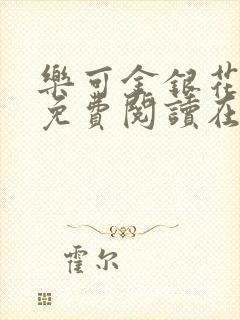 樂可金銀花
免費閱讀在
霍尔